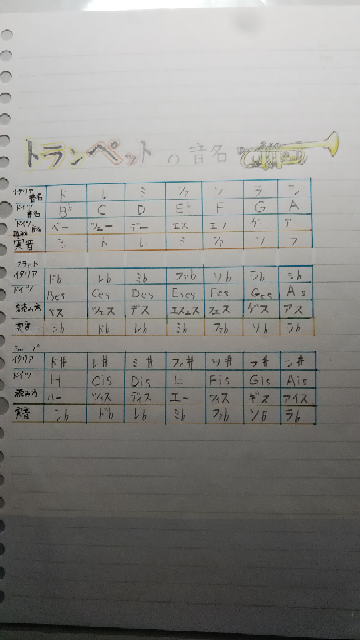 トランペットの音名
イタリア音名 ド レ ミ ファ ソ ラ シ
ドイツ音名 B♭ C D E♭ F G A
ドイツ音名読み方 ベー ツェー デー エス エフ ゲー アー
実音 シ ド レ ミ ファ ソ ラ
フラット
イタリア ド♭ レ♭ ミ♭ ファ♭ ソ♭ ラ♭ シ♭
ドイツ Bes Ces Des Eses Fes Ges As
読み方 ベス ツェス デス エスエス フェス ゲス アス
実音 シ♭ ド♭ レ♭ ミ♭ ファ♭ ソ♭ ラ♭
シャープ
イタリア ド# レ# ミ# ファ# ソ# ラ# シ#
ドイツ H Cis Dis E Fis Gis Ais
読み方 ハー ツィス ディス エー フィス ギス アイス
実音 シ♭ ド♭ レ♭ ミ♭ ファ♭ ソ♭ ラ♭